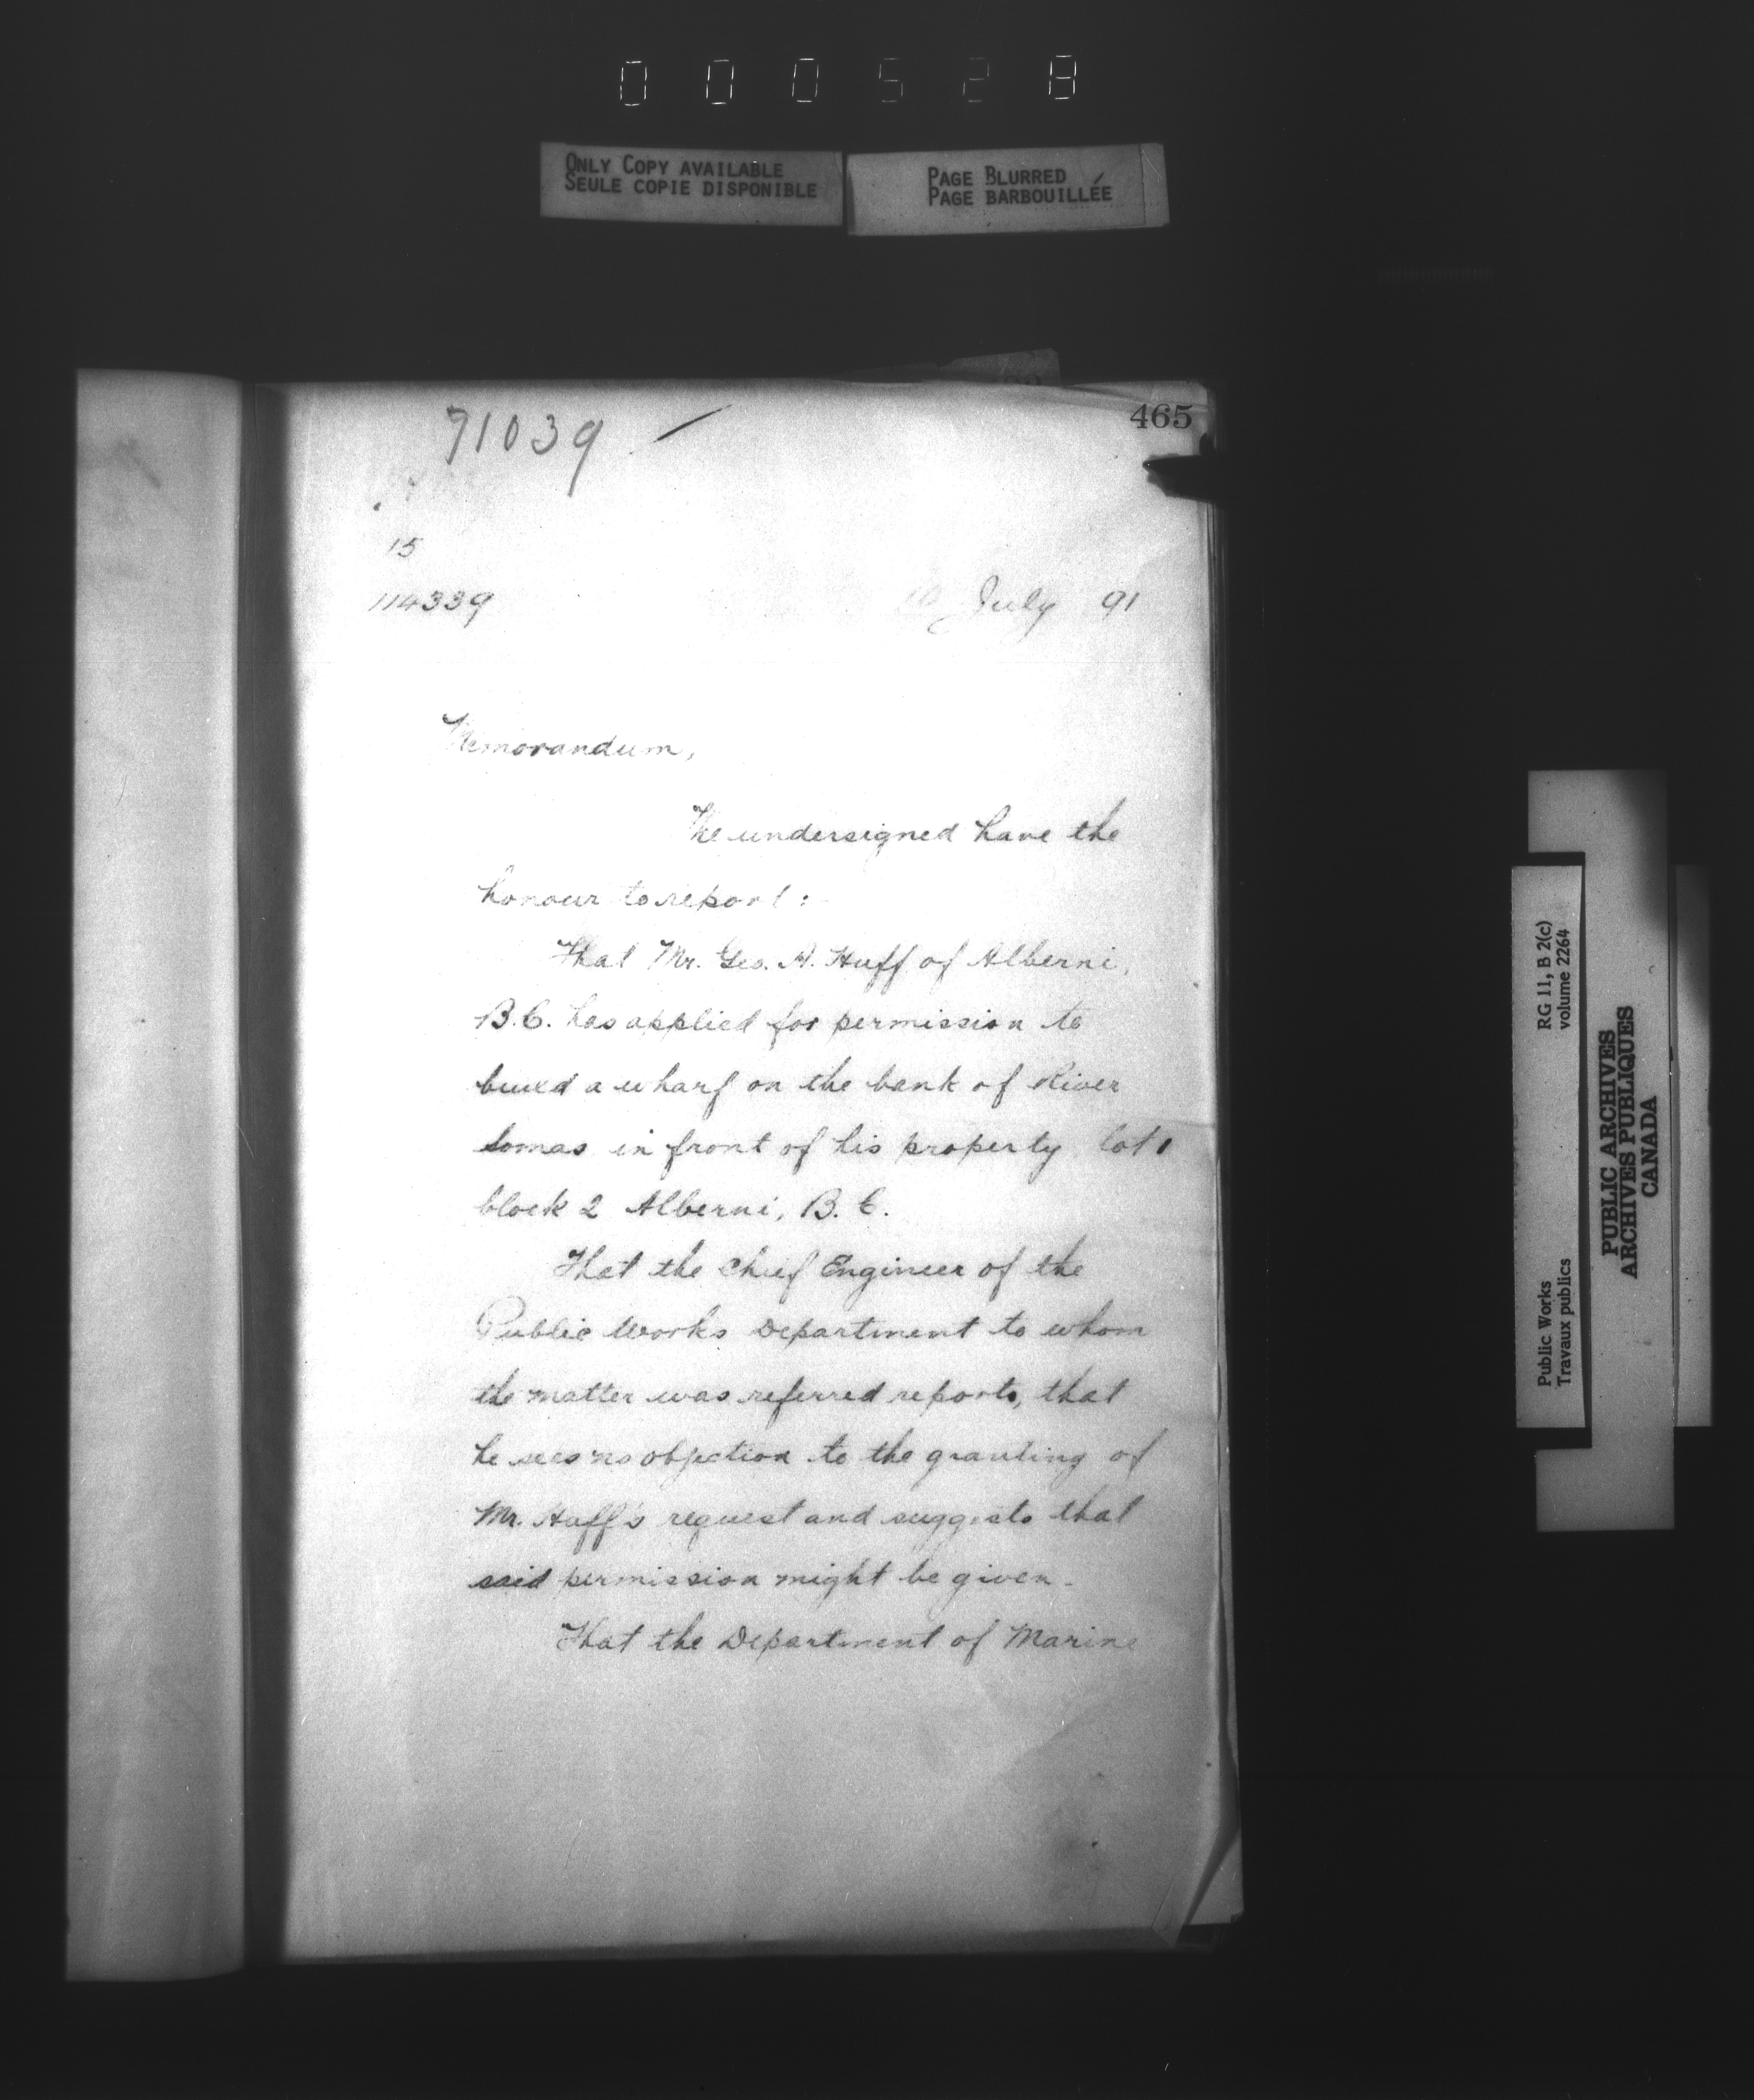 000528
ONLY COPY AVAILABLE
SEULE COPIE DISPONIBLE
PAGE BLURRED
PAGE BARBOUILLÉE
465
71039
15
114339
July 91
Memorandum,
The undersigned have the
honour to report:
That Mr. Geo. A. Huff of Alberni,
B.C. has applied for permission to
build a wharf on the bank of River
Somas in front of his property lot 1
block 2 Alberni, B.C.
That the Chief Engineer of the
Public Works Department to whom
the matter was referred reports, that
he sees no objection to the granting of
Mr. Huff's request and suggests that
said permission might be given.
That the Department of Marine
RG 11, B 2(c)
volume 2264
Public Works
Travaux publics
PUBLIC ARCHIVES
ARCHIVES PUBLIQUES
CANADA